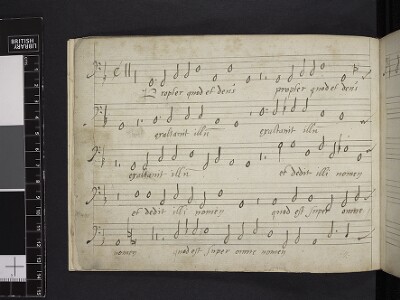 Propter quod et deus propter quod et deus
exaltavit illū exaltavit illū
exaltavit illū et dedit illi nomen
et dedit illi nomen quod est super omne
nomen quod est super omne nomen
BRITISH
LIBRARY